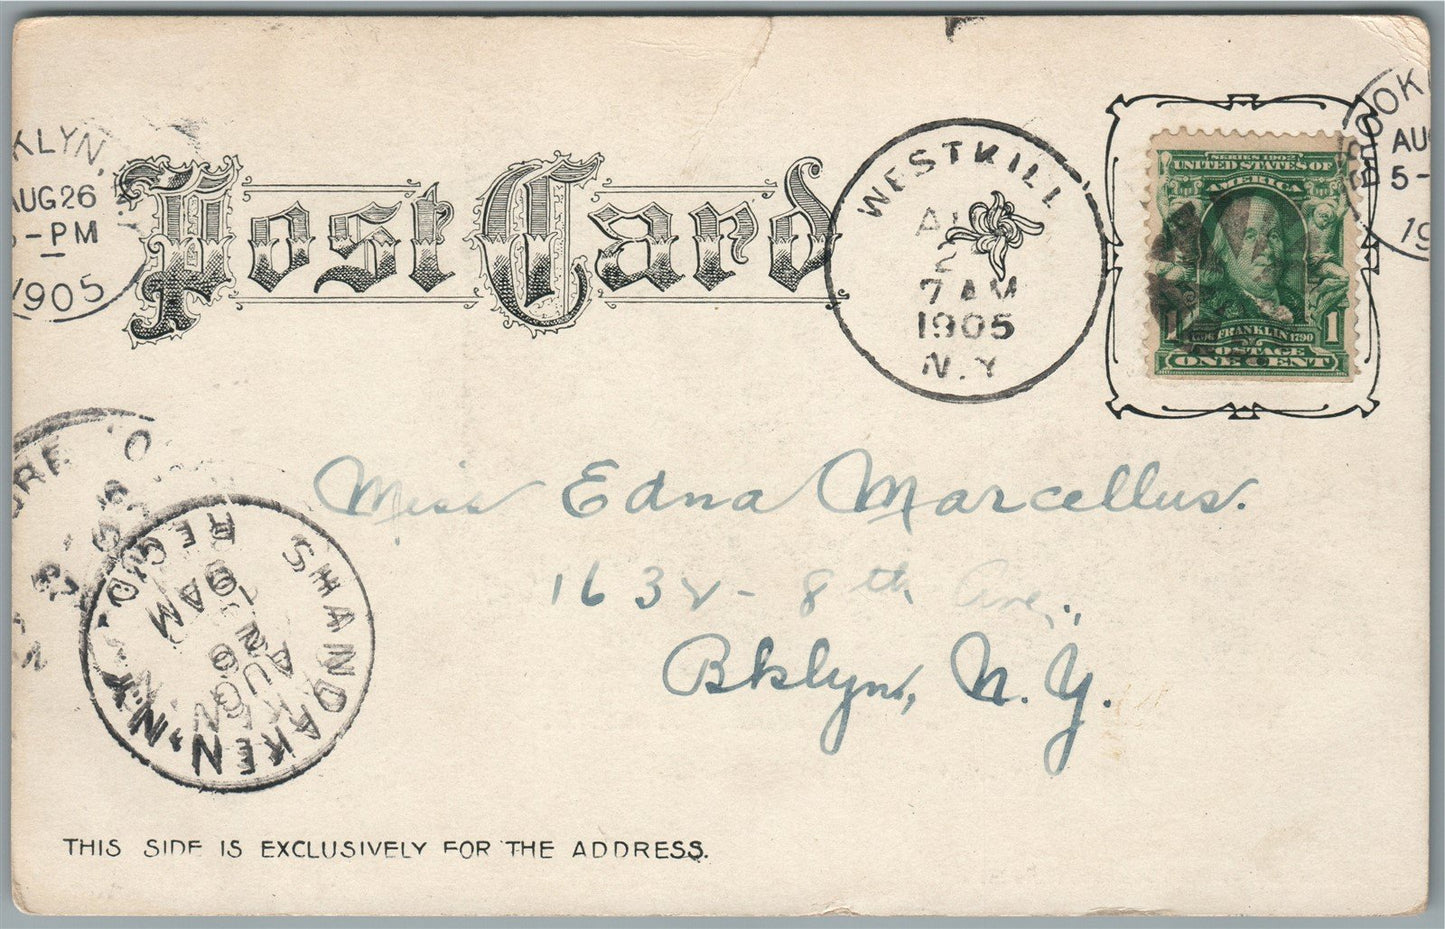 KLYN,
AUG 26
5-PM
1905
Post Card
WESTKILL
2
7 AM
1905
N.Y
SERIES 1902
UNITED STATES OF
AMERICA
1 FRANKLIN 1790 1
POSTAGE
ONE CENT
BROOK
AU
5-
19
Miss Edna Marcellus.
1632 - 8th Ave.,
Bklyn, N.Y.
SHANDAKEN N.Y.
REC'D
9 AM
AUG
26
THIS SIDE IS EXCLUSIVELY FOR THE ADDRESS.